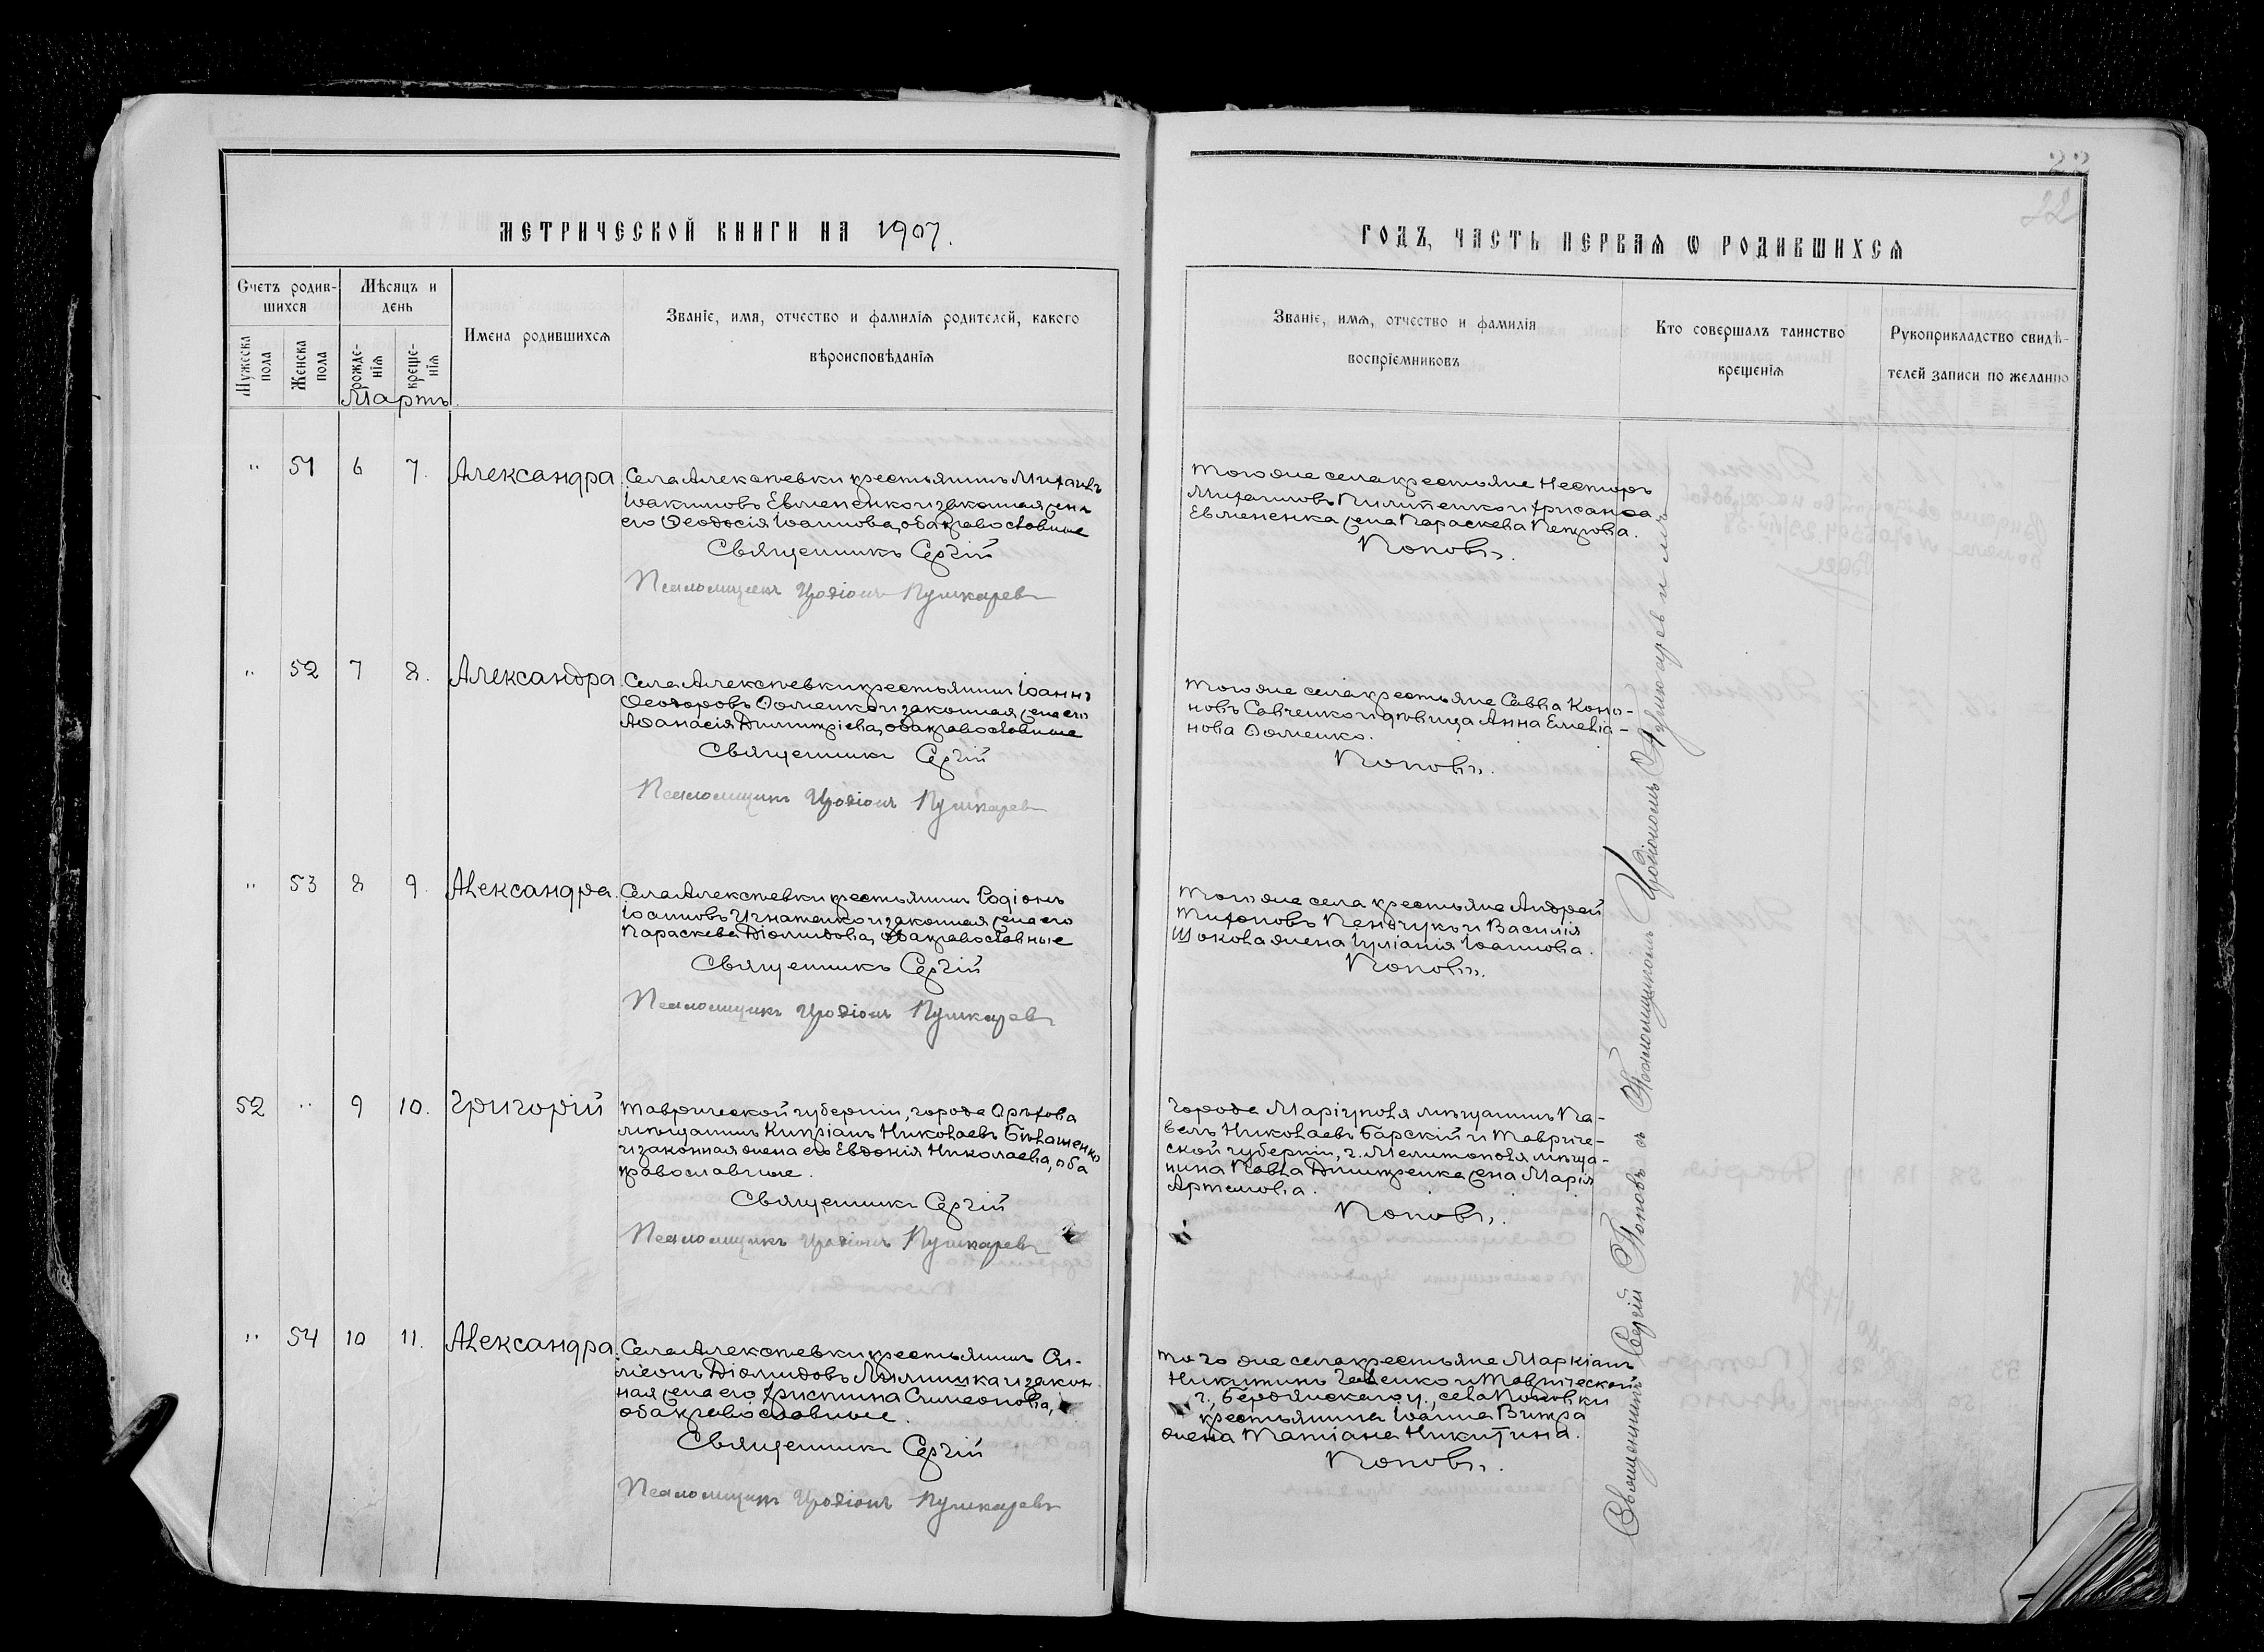 МЕТРИЧЕСКОЙ КНИГИ НА 1907.
Счетъ родив-
шихся
Мѣсяцъ и
день
Мужеска
пола
Женска
пола
рожде-
нія
креще-
нія
Имена родившихся
Званіе, имя, отчество и фамилія родителей, какого
вѣроисповѣданія
Мартъ.
" 51 6 7. Александра
Села Алексѣевки крестьянинъ Михаилъ
Іоакимовъ Евмененко и законная жена
его Ѳеодосія Іоаннова, оба православные
Священникъ Сергій
Псаломщикъ Иродіонъ Пушкаревъ
" 52 7 8. Александра
Села Алексѣевки крестьянинъ Іоаннъ
Ѳеодоровъ Ѳоменко и законная жена его
Аѳанасія Димитріева, оба православные
Священникъ Сергій
Псаломщикъ Иродіонъ Пушкаревъ
" 53 8 9. Александра.
Села Алексѣевки крестьянинъ Родіонъ
Іоанновъ Игнатенко и законная жена его
Параскева Діомидова, оба православные
Священникъ Сергій
Псаломщикъ Иродіонъ Пушкаревъ
52 " 9 10. Григорій
Таврической губерніи, города Орѣхова
мѣщанинъ Кипріанъ Николаевъ Бѣлашенко
и законная жена его Евдокія Николаева, оба
православные.
Священникъ Сергій
Псаломщикъ Иродіонъ Пушкаревъ
" 54 10 11. Александра.
Села Алексѣевки крестьянинъ Си-
меонъ Діомидовъ и закон-
ная жена его Христина Симеонова,
оба православные.
Священникъ Сергій
Псаломщикъ Иродіонъ Пушкаревъ
ГОДЪ, ЧАСТЬ ПЕРВАЯ Ѡ РОДИВШИХСЯ
22
Званіе, имя, отчество и фамилія
воспріемниковъ
Кто совершалъ таинство
крещенія
Рукоприкладство свидѣ-
телей записи по желанію
Того же села крестьяне Несторъ
Михаиловъ Пилипенко и Хрисанѳа
Евмененка жена Параскева Петрова.
Поповъ.
Того же села крестьяне Савва Коно-
новъ Савченко и дѣвица Анна Емеліа-
нова Ѳоменко.
Поповъ.
Того же села крестьяне Андрей
Тихоновъ Пендчукъ и Василія
Шокова жена Іуліанія Іоаннова.
Поповъ.
города Маріуполя мѣщанинъ Па-
велъ Николаевъ Барскій и Тавриче-
ской губерніи, г. Мелитополя мѣща-
нина Павла Дмитренка жена Марія
Артемова.
Поповъ.
того же села крестьяне Маркіанъ
Никитинъ и Таврической
г., Бердянскаго у., села Поповки
крестьянина Іоанна Витра
жена Татіана Никитина.
Поповъ.
Священникъ Сергій Поповъ съ Псаломщикомъ Иродіономъ Пушкаревымъ